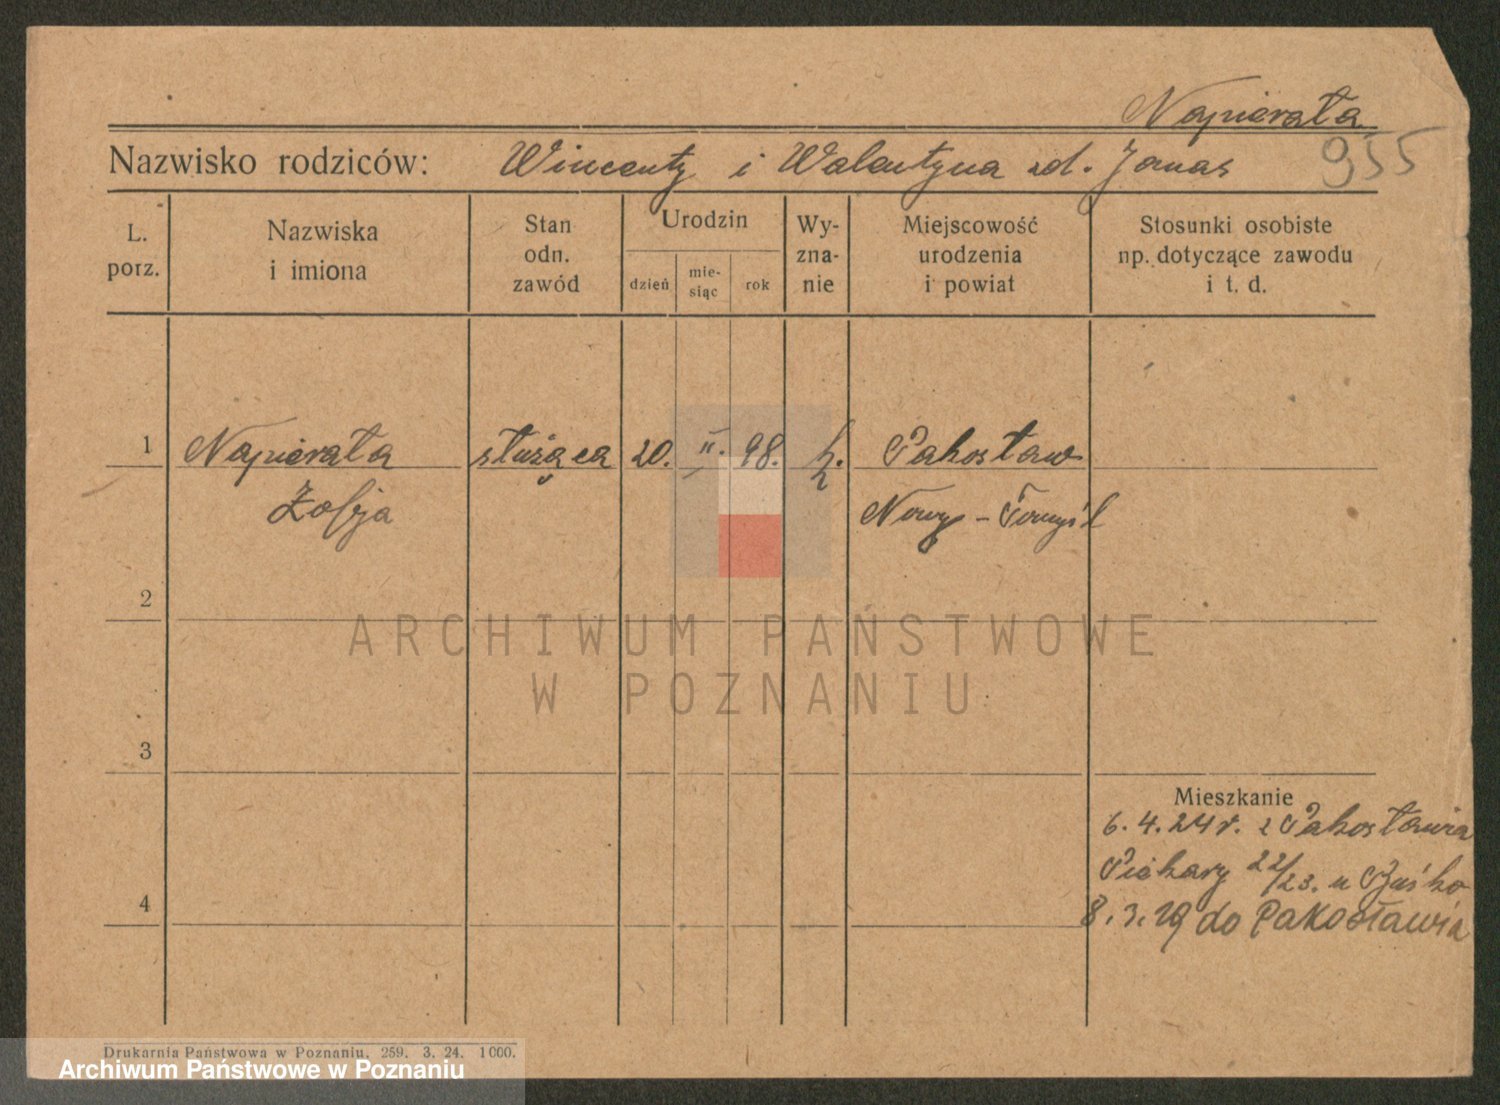 Napierała
Nazwisko rodziców: Wincenty i Walentyna zd. Janas 955
L. porz.
Nazwiska i imiona
Stan odn. zawód
Urodzin
dzień
mie-siąc
rok
Wy-zna-nie
Miejscowość urodzenia i powiat
Stosunki osobiste np. dotyczące zawodu i t. d.
1 Napierała służąca 20. II. 98. k. Pakosław
Zofja Nowy-Tomyśl
2
ARCHIWUM PAŃSTWOWE
W POZNANIU
3
Mieszkanie
6. 4. 24 r. z Pakosławia
Piekary 22/23. u
4
8. 3. 29 do Pakosławia
Drukarnia Państwowa w Poznaniu. 259. 3. 24. 1000.
Archiwum Państwowe w Poznaniu